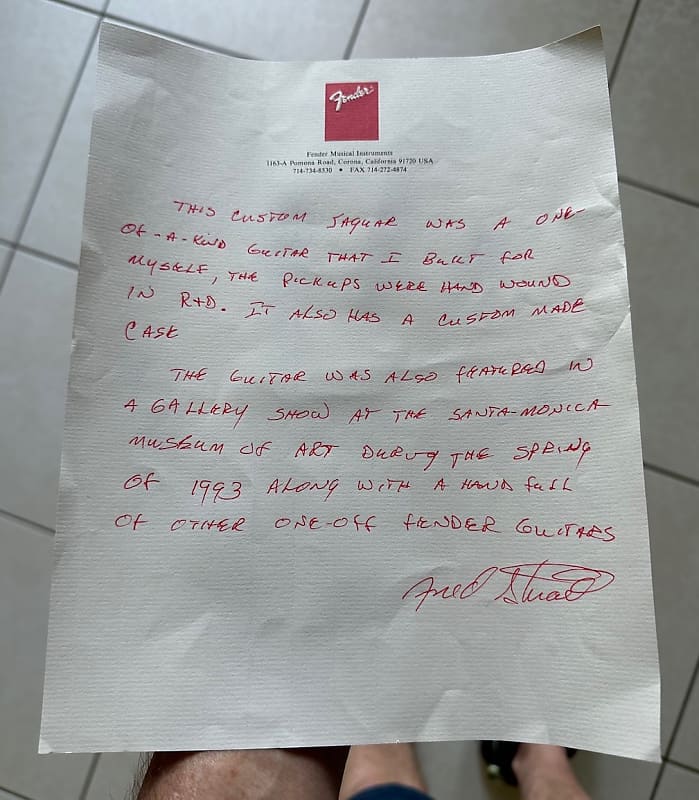 Fender
Fender Musical Instruments
1163-A Pomona Road, Corona, California 91720 USA
714-734-8330 • FAX 714-272-4874
THIS CUSTOM JAGUAR WAS A ONE-
OF-A-KIND GUITAR THAT I BUILT FOR
MYSELF, THE PICKUPS WERE HAND WOUND
IN R+D. IT ALSO HAS A CUSTOM MADE
CASE
THE GUITAR WAS ALSO FEATURED IN
A GALLERY SHOW AT THE SANTA-MONICA
MUSEUM OF ART DURING THE SPRING
OF 1993 ALONG WITH A HAND FULL
OF OTHER ONE-OFF FENDER GUITARS
Fred Stuart